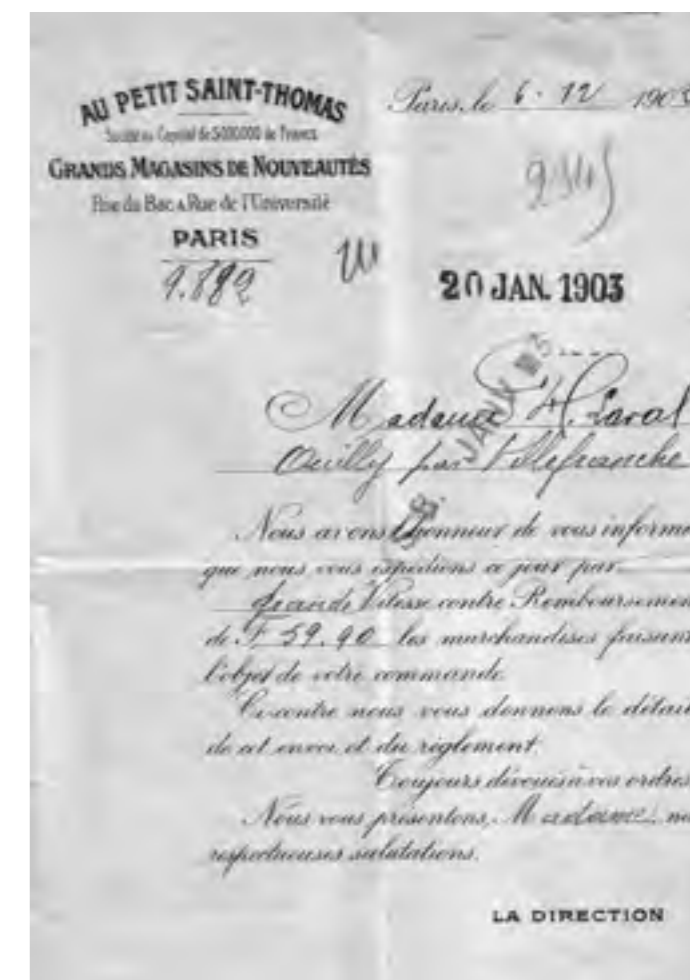 AU PETIT SAINT-THOMAS
Société au Capital de 5.000.000 de Francs
GRANDS MAGASINS DE NOUVEAUTÉS
Rue du Bac & Rue de l'Université
PARIS
Paris, le 6. 12 1903
20 JAN. 1903
Madame H. Laval
Ouilly par Villefranche
Nous avons l'honneur de vous informe
que nous vous expédions ce jour par
grande Vitesse contre Remboursemen
de F 59.90 les marchandises faisant
l'objet de votre commande.
Ci-contre nous vous donnons le détail
de cet envoi et du règlement.
Toujours dévoués à vos ordres
Nous vous présentons, Madame, no
respectueuses salutations.
LA DIRECTION